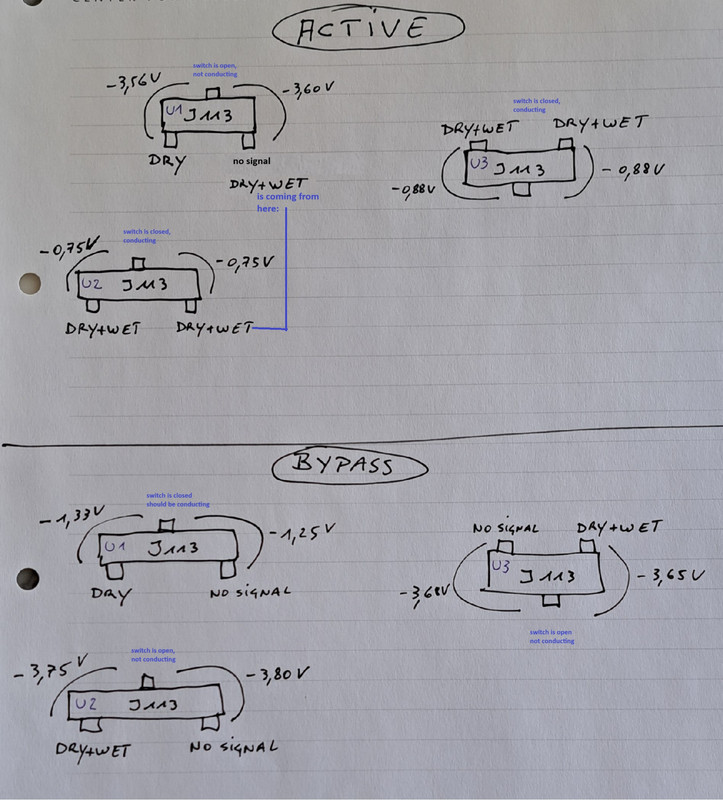 ACTIVE
switch is open,
not conducting
-3,56V
-3,60V
U1 J113
DRY
no signal
DRY+WET
is coming from
here:
switch is closed,
conducting
DRY+WET
DRY+WET
U3 J113
-0,88V
-0,88V
switch is closed,
conducting
-0,75V
-0,75V
U2 J113
DRY+WET
DRY+WET
BYPASS
switch is closed
should be conducting
-1,33V
-1,25V
U1 J113
DRY
NO SIGNAL
NO SIGNAL
DRY+WET
U3 J113
-3,68V
-3,65V
switch is open
not conducting
switch is open,
not conducting
-3,75V
-3,80V
U2 J113
DRY+WET
NO SIGNAL